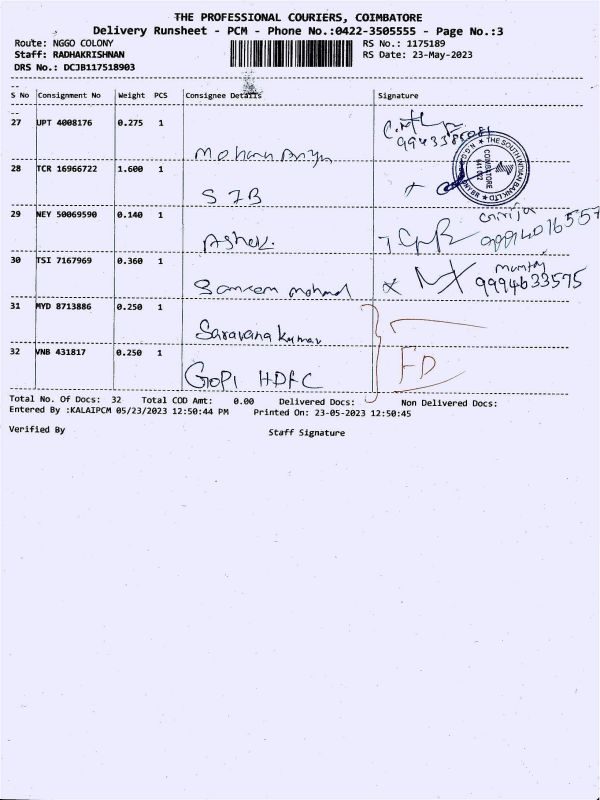 THE PROFESSIONAL COURIERS, COIMBATORE
Delivery Runsheet - PCM - Phone No.:0422-3505555 - Page No.:3
Route: NGGO COLONY RS No.: 1175189
Staff: RADHAKRISHNAN RS Date: 23-May-2023
DRS No.: DCJB117518903
S No Consignment No Weight PCS Consignee Details Signature
27 UPT 4008176 0.275 1
9943385081
Mohana
28 TCR 16966722 1.600 1
THE SOUTH INDIAN BANK LTD
COIMBATORE
S I B
29 NEY 50069590 0.140 1
Girija
Ashok.
30 TSI 7167969 0.360 1
9994633575
mohmad
31 MYD 8713886 0.250 1
Saravana kumar
32 VNB 431817 0.250 1
FD
GOPI HDFC
Total No. Of Docs: 32 Total COD Amt: 0.00 Delivered Docs: Non Delivered Docs:
Entered By :KALAIPCM 05/23/2023 12:50:44 PM Printed On: 23-05-2023 12:50:45
Verified By Staff Signature